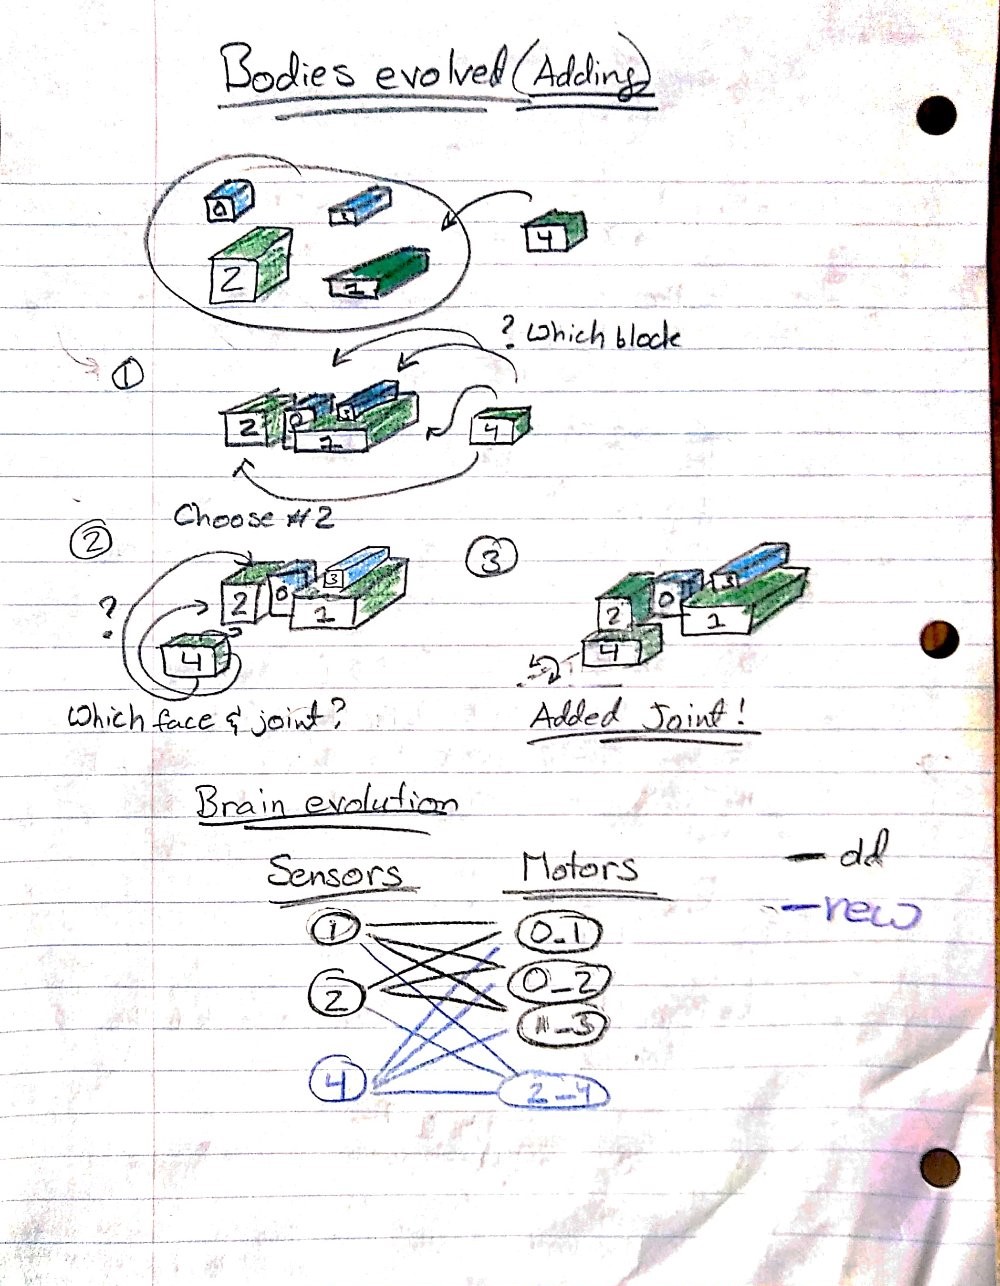 Bodies evolved (Adding)
0 3
4
2 1
? Which block
①
2 0 3 1 4
Choose #2
② ③
2 0 3 1
?
4
2 0 3 1
4
Which face & joint?
Added Joint!
Brain evolution
Sensors Motors
— old
— new
1 0_1
2 0_2
1_3
4 2_4